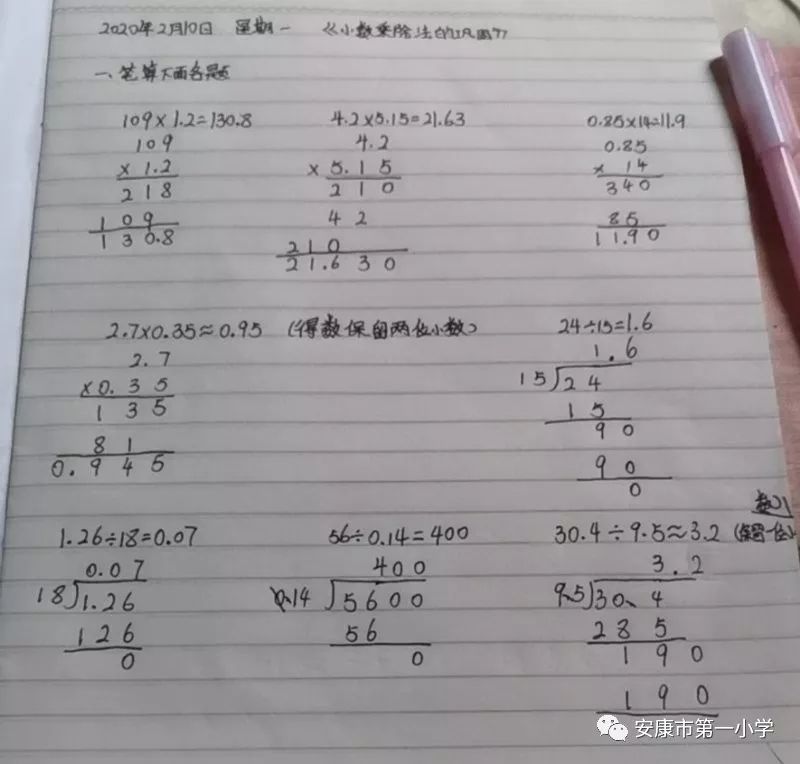 2020年2月10日 星期一 《小数乘除法的巩固》
一、笔算下面各题
109×1.2=130.8 4.2×5.15=21.63 0.85×14=11.9
109 4.2 0.85
×1.2 ×5.15 ×14
218 210 340
109 42 85
130.8 210 11.90
21.630
2.7×0.35≈0.95 (得数保留两位小数) 24÷15=1.6
2.7 1.6
×0.35 15)24
135 15
81 90
0.945 90
0
数)
1.26÷18=0.07 56÷0.14=400 30.4÷9.5≈3.2 (保留一位小
0.07 400 3.2
18)1.26 0.14)5600 9.5)30.4
126 56 285
0 0 190
190
安康市第一小学